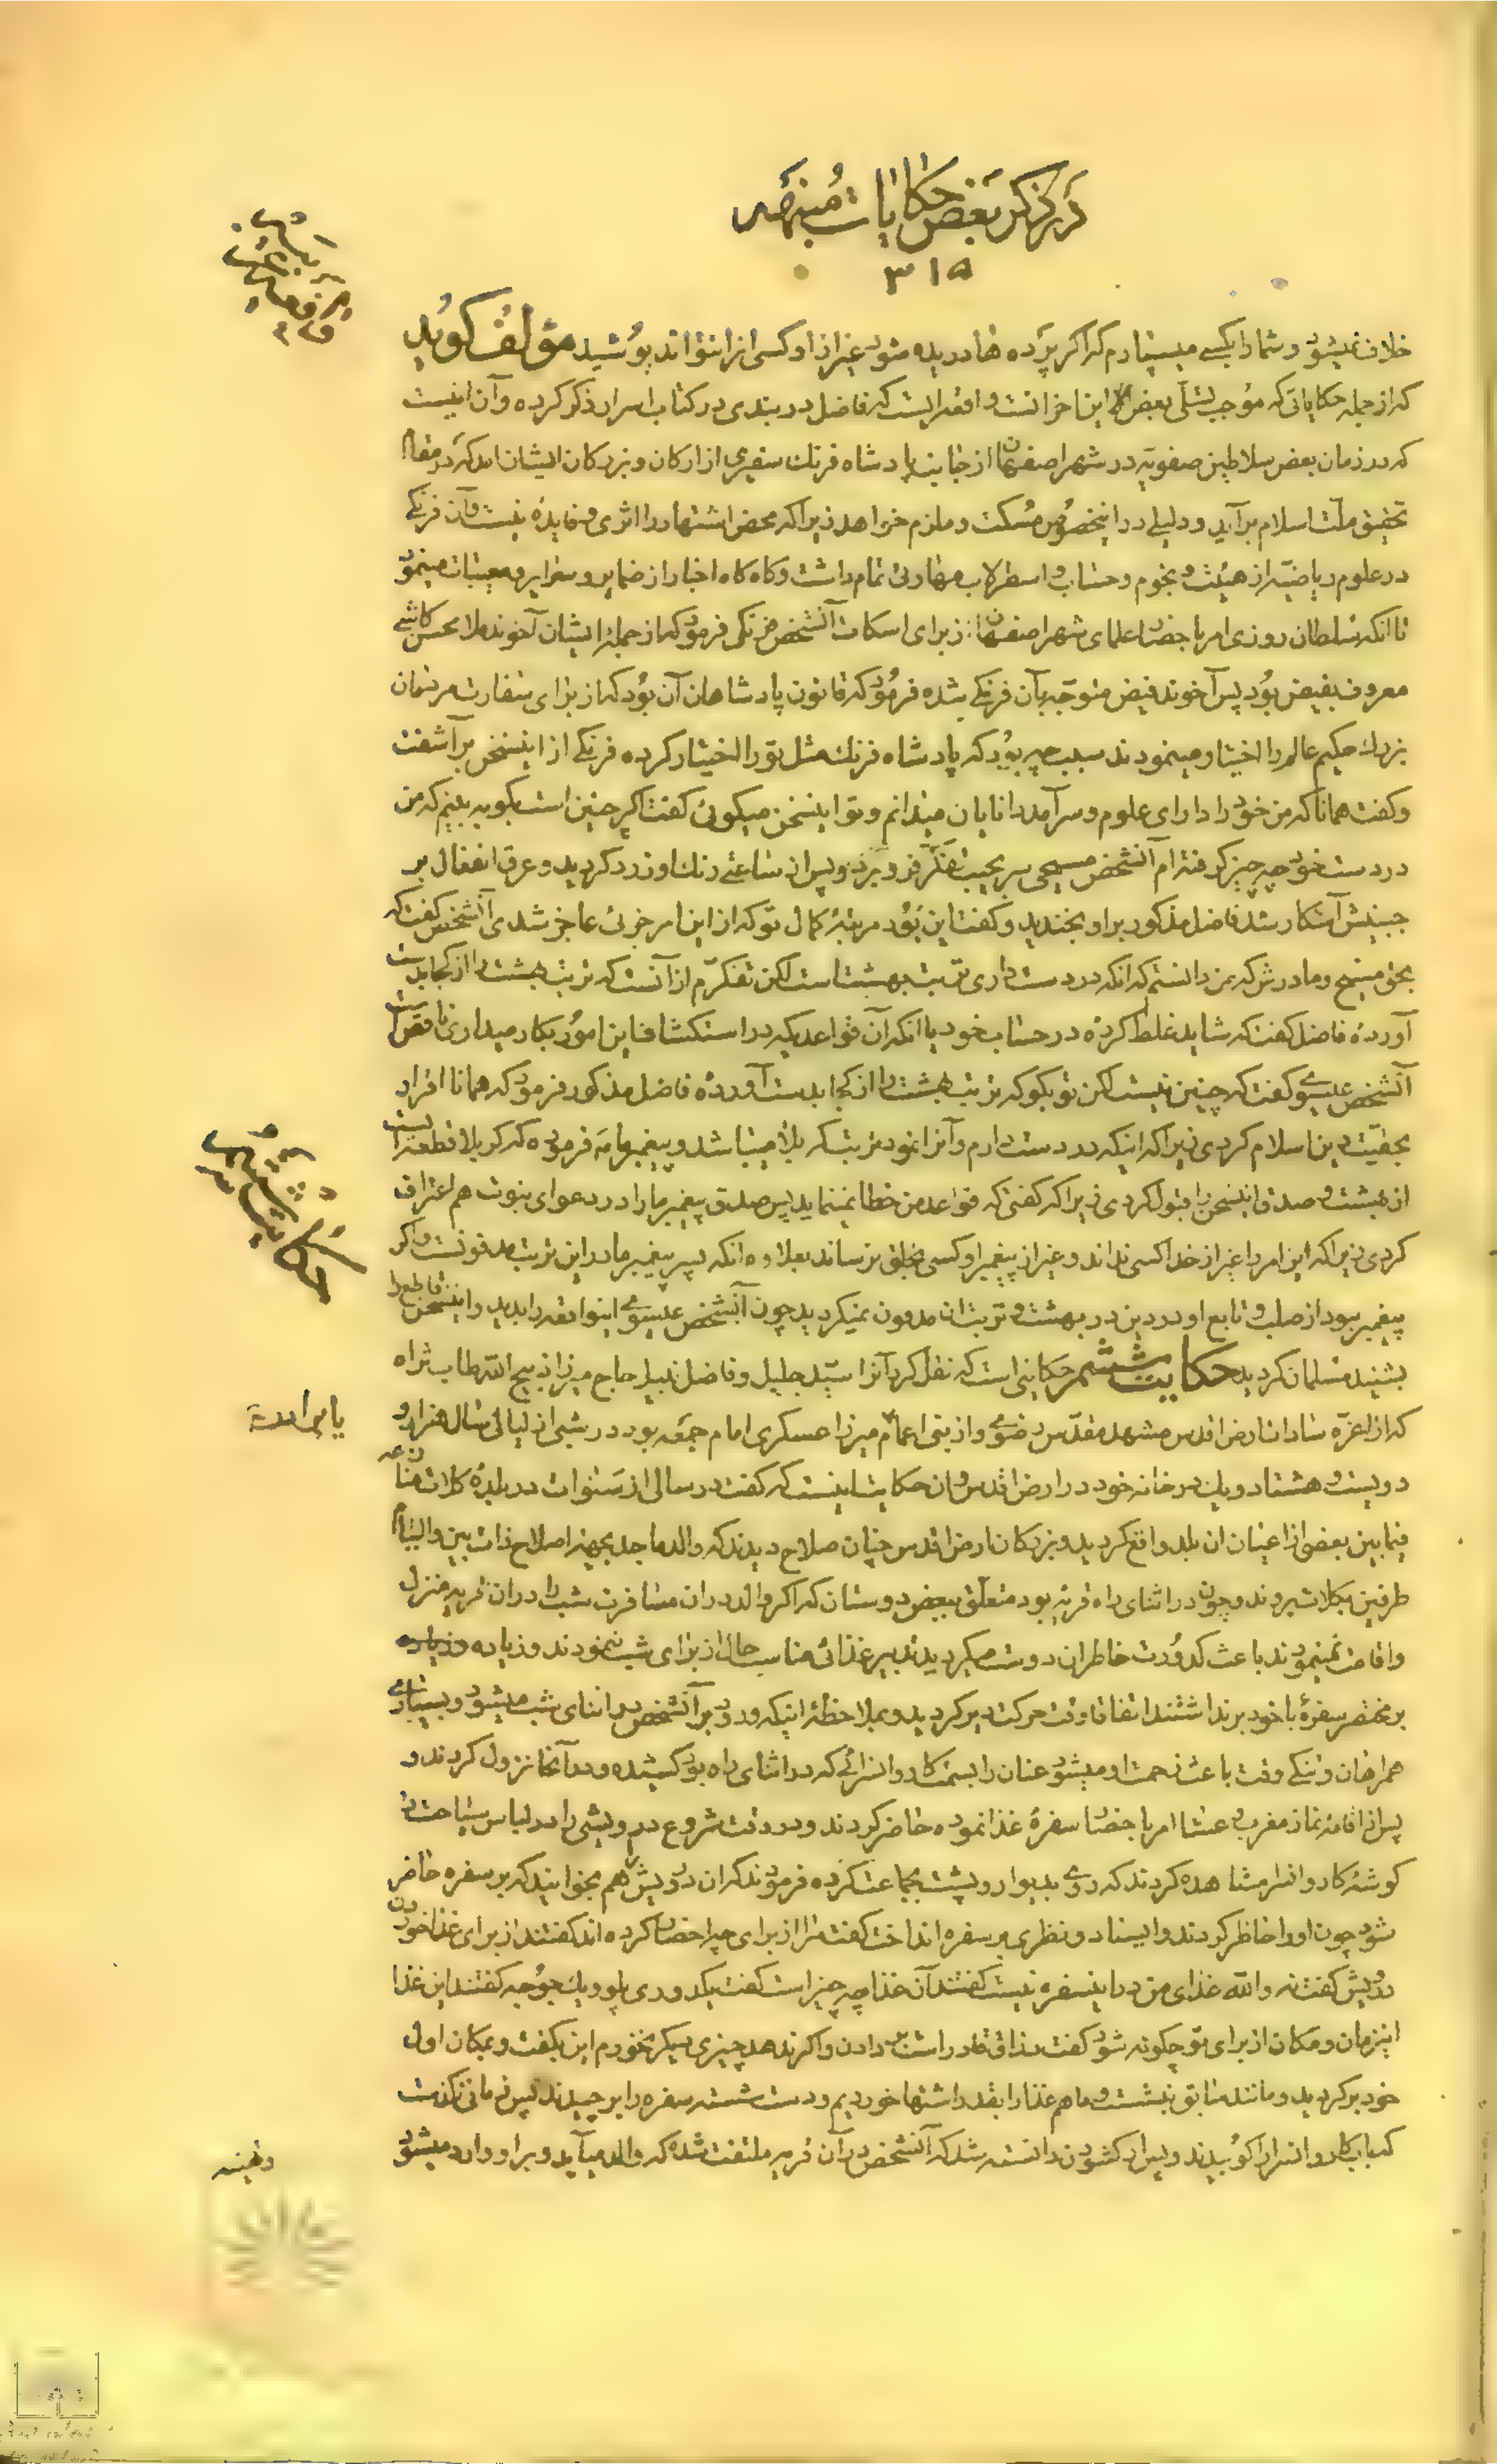 در ذکر بعض حکایات مبنهضه
۳۱۵
خلاف نمیشود و شما را بکسی میسپارم که اگر پرده ها دریده شود غیر از او کسی انرا نتواند پوشید مؤلف گوید
که از جمله حکایاتی که موجب تسلی بعض این احزانست واقعه ایست که فاضل دربندی در کتاب اسرار ذکر کرده و آن اینست
که در زمان بعض سلاطین صفویه در شهر اصفهان از جانب پادشاه فرنك سفیری از ارکان و بزرکان ایشان امد که در مقام
تحقیق ملت اسلام برآید و دلیلی در اینخصوص مسکت و ملزم خواهد زیرا که محض اشتهار را اثری و فایدهٔ نیست و آن فرنکی
در علوم ریاضیه از هیئت و نجوم و حساب و اسطرلاب مهارتی تمام داشت و کاه کاه اخبار از ضمایر و سرایر و مغیبات مینمود
تا انکه سلطان روزی امر باحضار علمای شهر اصفهان از برای اسکات آنشخص فرنکی فرمود که از جملهٔ ایشان آخوند ملا محسن کاشی
معروف بفیض بود پس آخوند فیض متوجه بآن فرنکی شده فرمود که قانون پادشاهان آن بود که از برای سفارت مردمان
بزرك حکیم عالم را اختیار مینمودند سبب چه بود که پادشاه فرنك مثل تو را اختیار کرده فرنکی از اینسخن برآشفت
و کفت همانا که من خود را دارای علوم و سرآمد دانایان میدانم و تو اینسخن میکوئی کفت اکر چنین است بکو به بینم که من
در دست خود چه چیز کرفته ام آنشخص مسیحی سر بجیب تفکر فرو برد و پس از ساعتی رنك او زرد کردید و عرق انفعال بر
جبینش آشکار شد فاضل مذکور بر او بخندید و کفت این بود مرتبهٔ کمال تو که از این امر جزئی عاجز شدی آنشخص کفت که
بحق مسیح و مادرش که من دانستم که انکه در دست داری تربت بهشت است لکن تفکرم از آنست که تربت بهشت را از کجا بدست
آوردهٔ فاضل کفت که شاید غلط کردهٔ در حساب خود یا انکه آن قواعدیکه در استکشاف این امور بکار میداری ناقص است
آنشخص عیسوی کفت که چنین نیست لکن تو بکو که تربت بهشت را از کجا بدست آوردهٔ فاضل مذکور فرمود که همانا اقرار
بحقیت دین اسلام کردی زیرا که اینکه در دست دارم و آنرا نمود تربت کربلا میباشد و پیغمبر ما فرموده که کربلا قطعه ایست
از بهشت و صدق اینسخن را قبول کردی زیرا که کفتی که قواعد من خطا نمینماید پس صدق پیغمبر ما را در دعوای نبوت هم اعتراف
کردی زیرا که این امر را غیر از خدا کسی نداند و غیر از پیغمبر او کسی بخلق نرساند بعلاوه انکه پسر پیغمبر ما در این تربت مدفونست و اکر
پیغمبر نبود از صلب و تابع او در دین در بهشت و تربت ان مدفون نمیکردید چون آنشخص عیسوی اینواقعه را بدید و اینسخن قاطع را
بشنید مسلمان کردید حکایت ششم حکایتی است که نقل کرد آنرا سید جلیل و فاضل نبیل حاج میرزا ذبیح الله طاب ثراه
که از اعزه سادات ارض اقدس مشهد مقدس رضوی و از بنی اعمام میرزا عسکری امام جمعه بود در شبی از لیالی سال هزار و
دویست و هشتاد و یك در خانه خود در ارض اقدس و ان حکایت اینست که کفت در سالی از سنوات در بلدهٔ کلات منازعه
فیمابین بعضی از اعیان ان بلد واقع کردید و بزرکان ارض اقدس چنان صلاح دیدند که والد ماجد بجهة اصلاح ذات بین و التیام
طرفین بکلات بروند و چون در اثنای راه قریه بود متعلق ببعض دوستان که اکر والد در ان مسافرت شب را در ان قریه منزل
و اقامت نمینمودند باعث کدورت خاطر ان دوست میکردید تدبیر غذائی مناسب حال از برای شب نمودند و زیاده
بر مختصر سفرهٔ با خود برنداشتند اتفاقا وقت حرکت دیر کردید و بملاحظهٔ اینکه ورود بر آنشخص در اثنای شب میشود و بسیاری
همراهان و تنکی وقت باعث زحمت او میشود عنان را بسمت کاروانسرائی که در اثنای راه بود کشیده و در آنجا نزول کردند و
پس از اقامهٔ نماز مغرب و عشا امر باحضار سفرهٔ غذا نموده حاضر کردند و در وقت شروع درویشی را در لباس سیاحت در
کوشهٔ کاروانسرا مشاهده کردند که روی بدیوار و پشت بجماعت کرده فرمودند که ان درویش را هم بخوانید که بر سفره حاضر
شود چون او را حاضر کردند وایستاد و نظری بر سفره انداخت کفت مرا از برای چه احضار کرده اند کفتند از برای غذا خوردن
درویش کفت نه والله غذای من در اینسفره نیست کفتند آن غذا چه چیز است کفت یکدوری پلو و یك جوجه کفتند این غذا
اینزمان و مکان از برای تو چکونه شود کفت رزاق قادر است بر دادن و اکر ندهد چیزی دیکر نخورم این بکفت و بمکان اول
خود برکردید و مانند سابق بنشست و ما هم غذا را بقدر اشتها خوردیم و دست شسته سفره را برچیدند پس زمانی نکذشت
که باب کاروانسرا را کوبیدند و پس از کشودن دانسته شد که آنشخص در آن قریه ملتفت شده که والد میآید و بر او وارد میشود